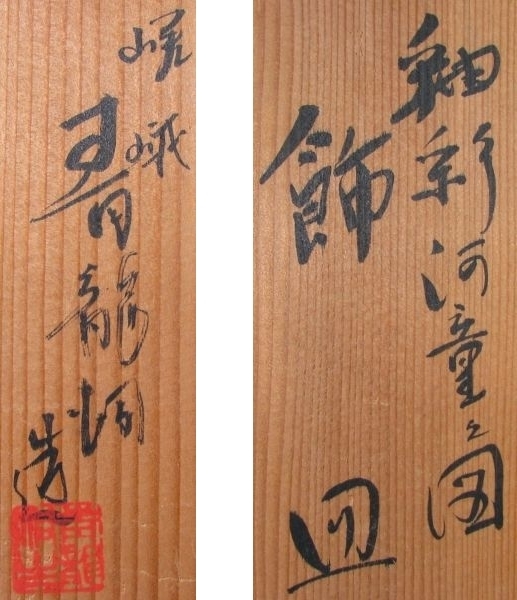 釉彩河童之図
飾皿
嵯峨
青龍洞
造